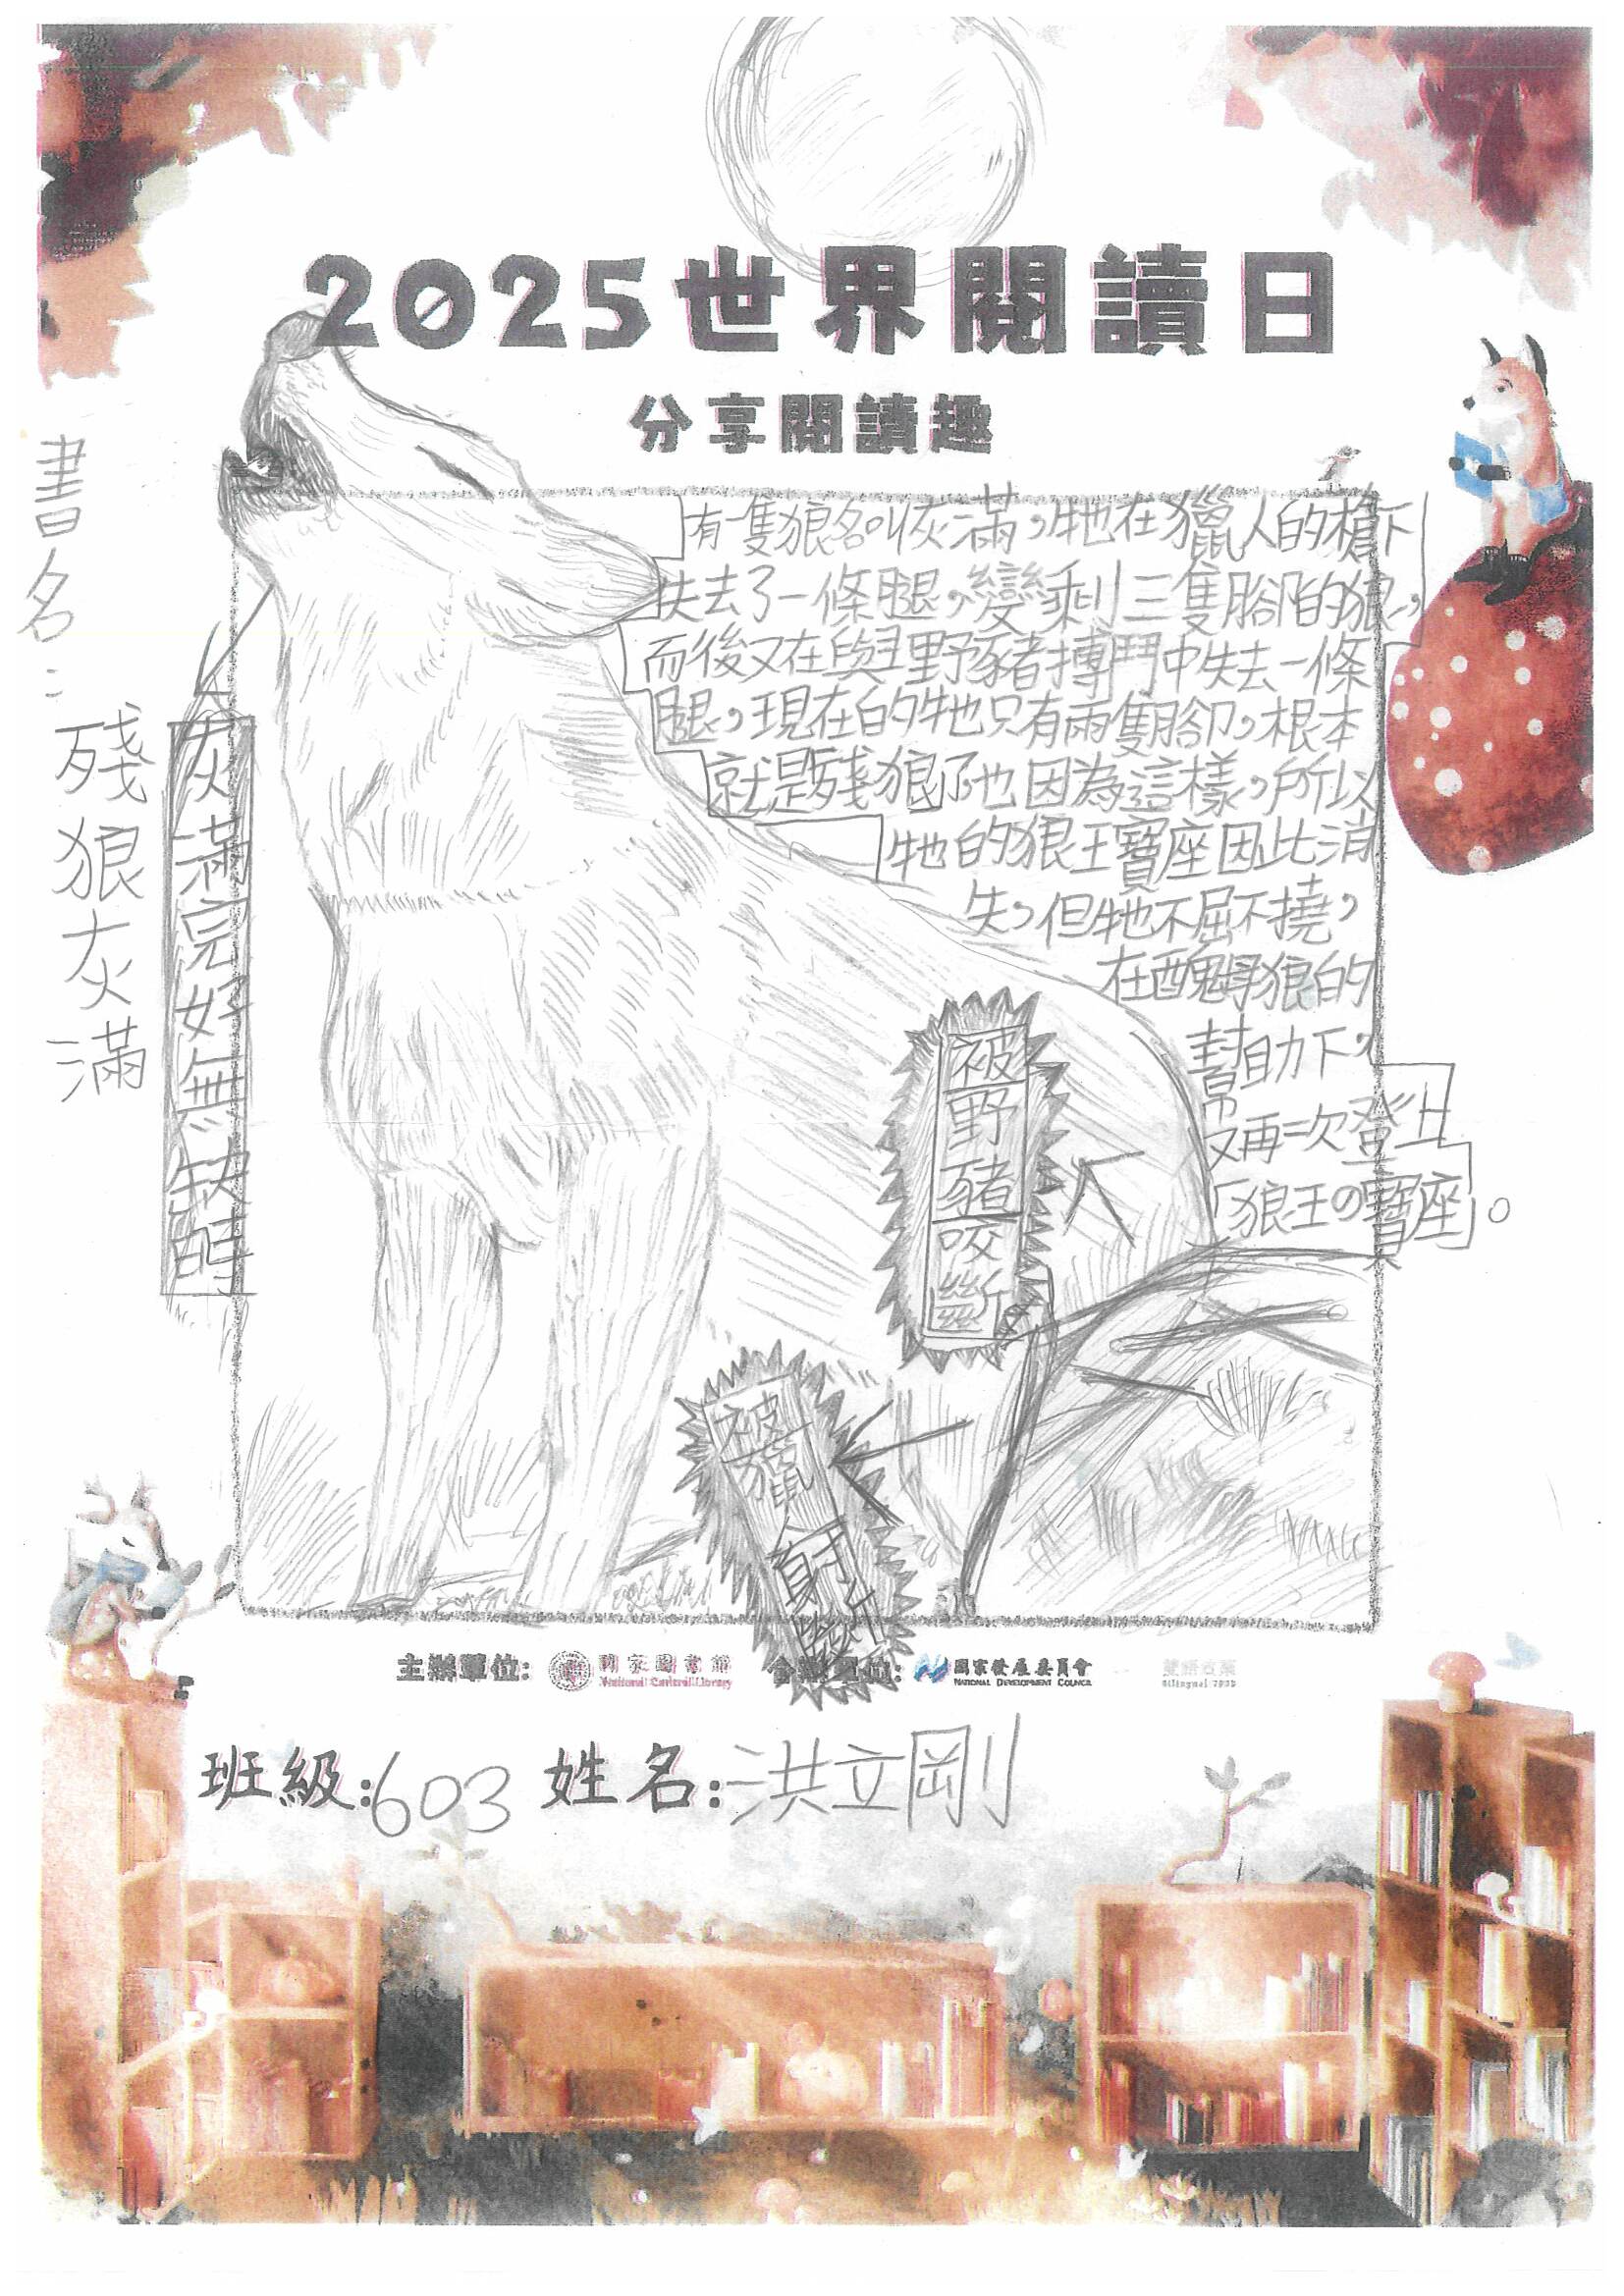 2025世界閱讀日
分享閱讀趣
書名:
殘狼灰滿
灰滿完好無缺時
有一隻狼名叫灰滿，牠在獵人的槍下
失去了一條腿，變剩三隻腳的狼，
而後又在與野豬搏鬥中失去一條
腿，現在的牠只有兩隻腳，根本
就是殘狼了也因為這樣，所以
牠的狼王寶座因此消
失，但牠不屈不撓，
在醜狼的
幫助下，
又再一次登上
「狼王の寶座」。
被野豬咬斷
被獵射斷
主辦單位:
國家圖書館
National Central Library
合辦單位:
國家發展委員會
NATIONAL DEVELOPMENT COUNCIL
雙語政策
Bilingual 2030
班級:603 姓名:洪立剛